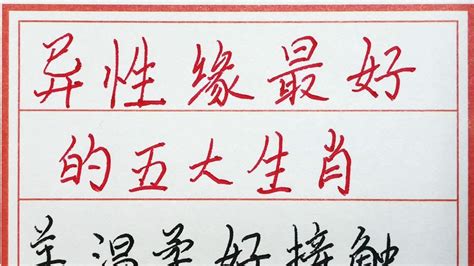 异性缘最好
的五大生肖
羊温柔好接触